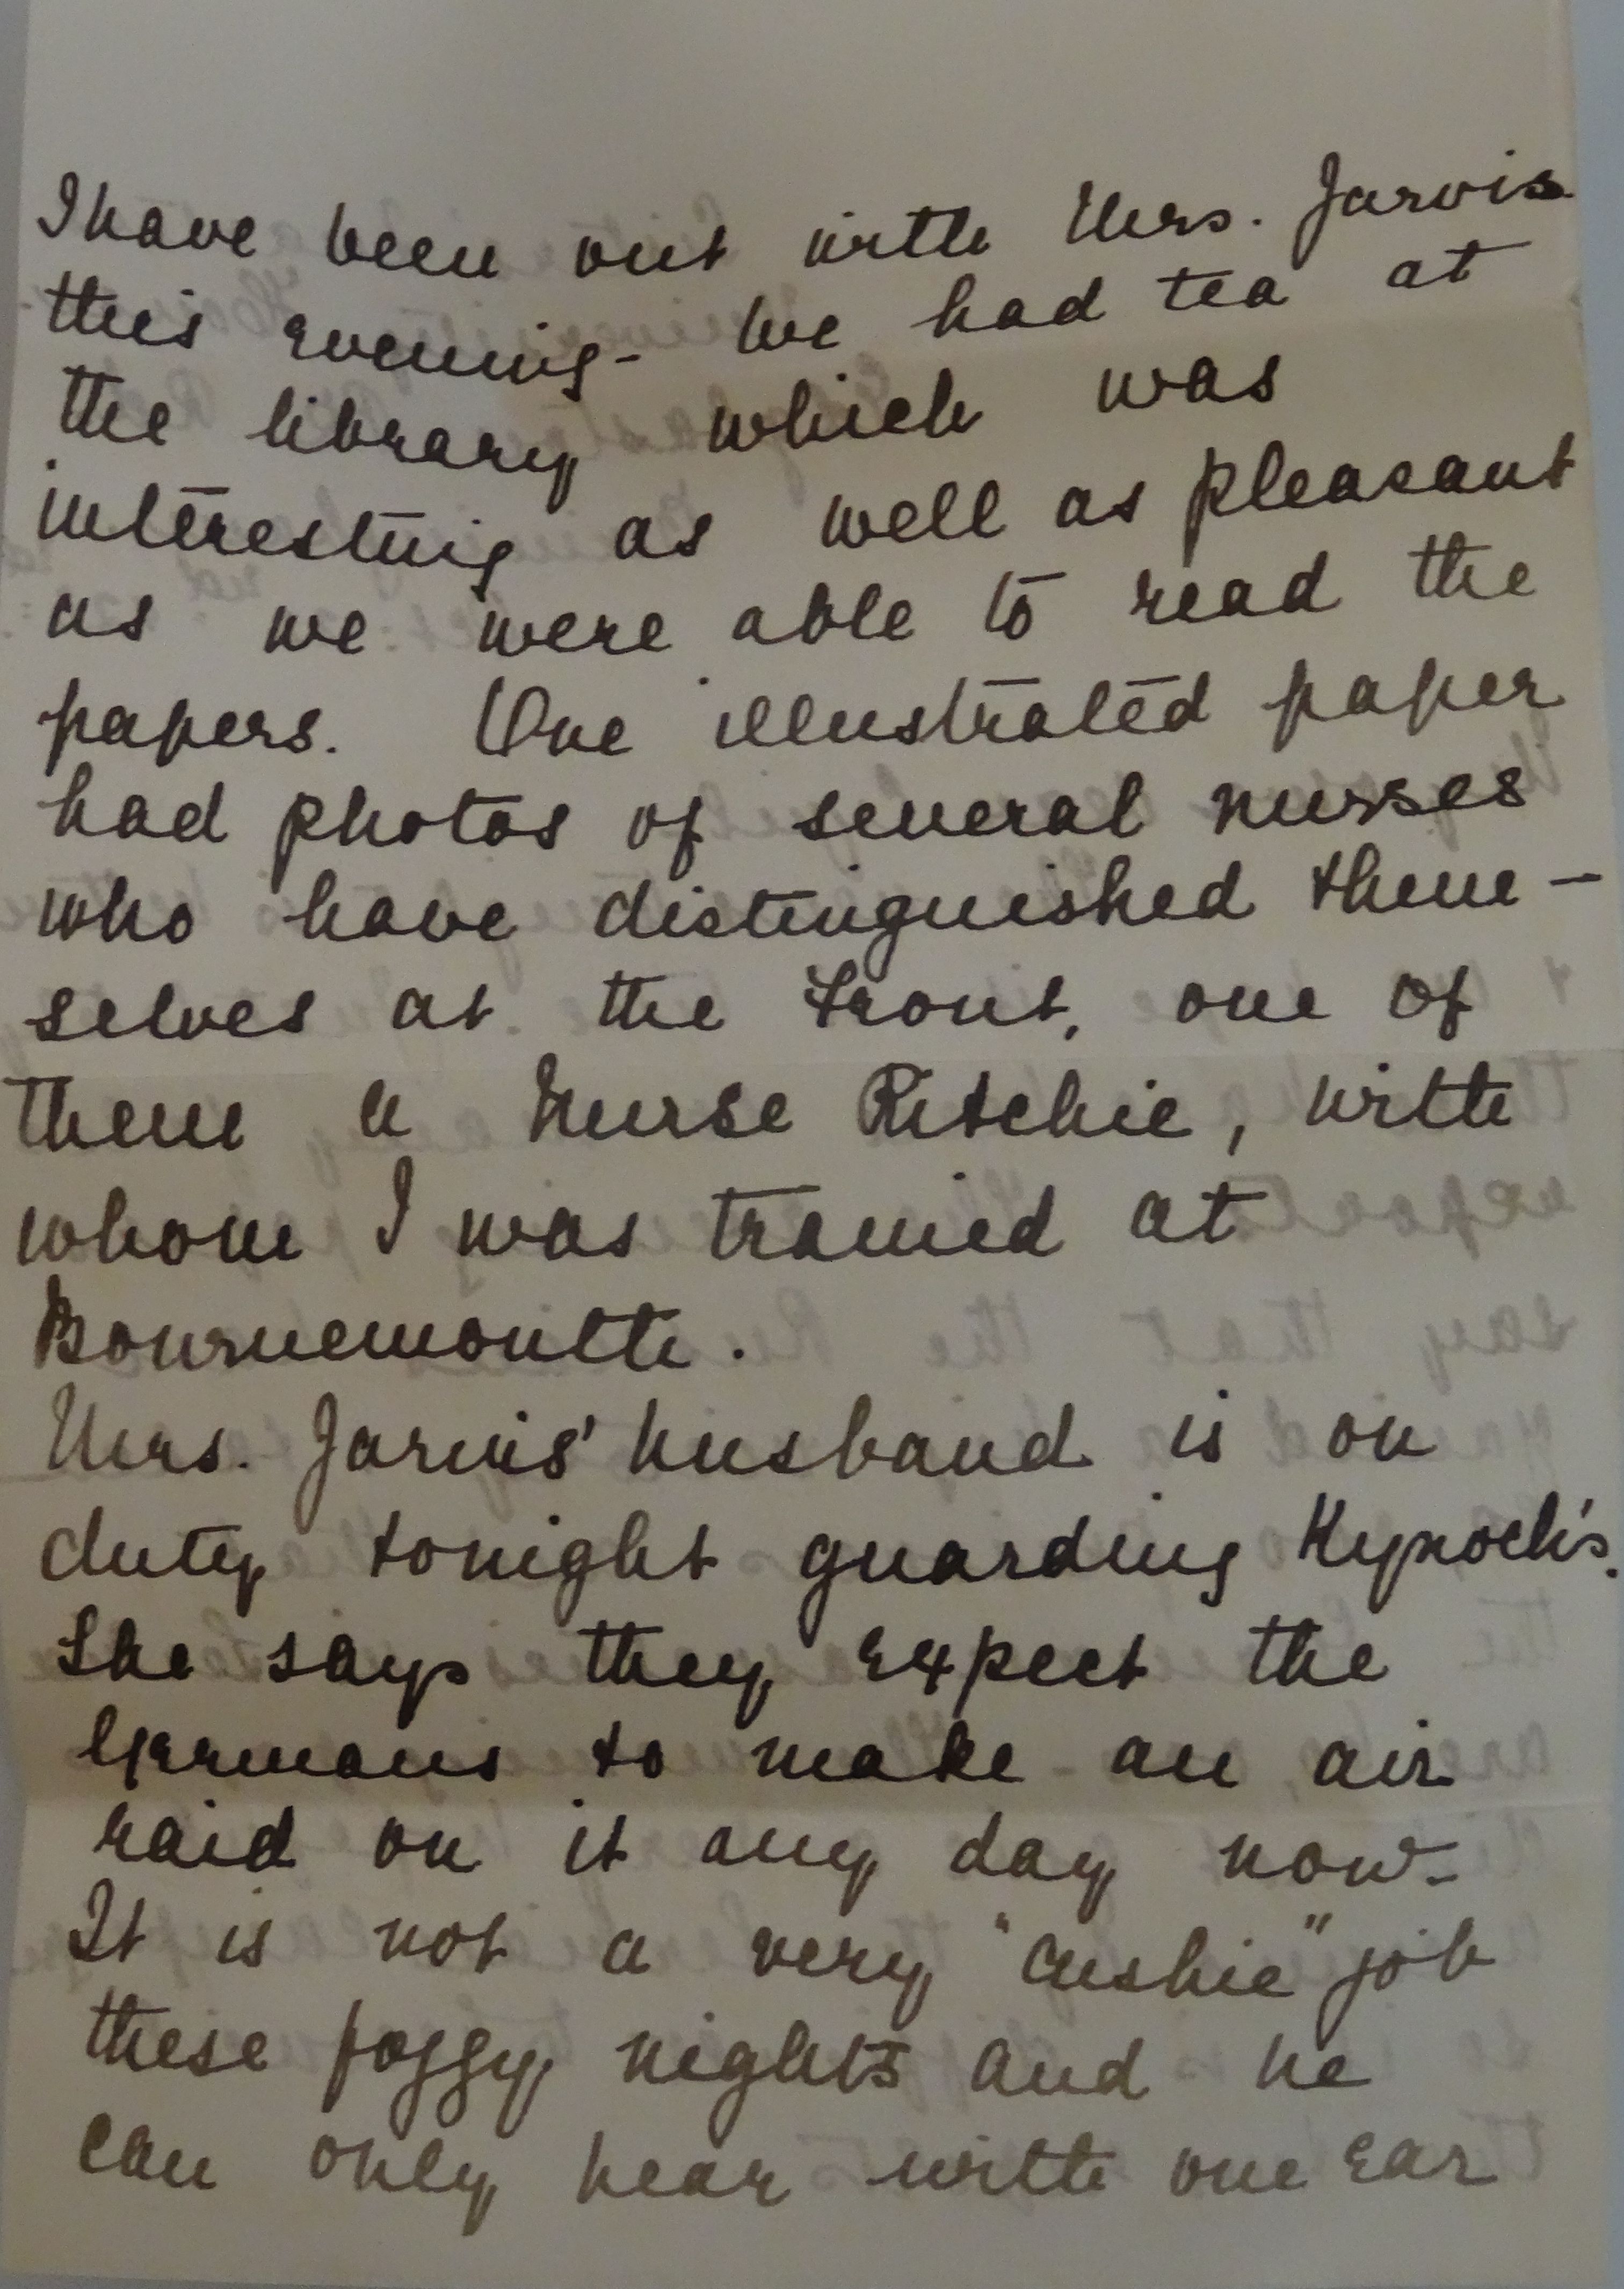 I have been out with Mrs. Jarvis
this evening - We had tea at
the library which was
interesting as well as pleasant
as we were able to read the
papers. One illustrated paper
had photos of several nurses
who have distinguished them -
selves at the Front, one of
them a Nurse Ritchie, with
whom I was trained at
Bournemouth.
Mrs. Jarvis' husband is on
duty tonight guarding Kynoch's.
She says they expect the
Germans to make an air
raid on it any day now -
It is not a very "cushie" job
these foggy nights and he
can only hear with one ear